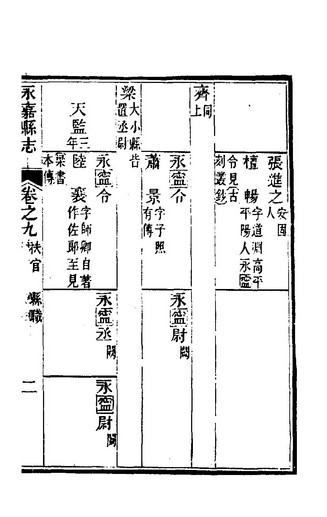 張進之 安固人
檀暢 字道淵高平平陽人永寧令見古刻叢鈔
齊 同上
永寧令
蕭景 字子照有傳
永寧尉 闕
梁 大小縣皆置丞尉
天監 三年
永寧令
陸襄 字師卿自著作佐郎至見梁書本傳
永寧丞 闕
永寧尉 闕
永嘉縣志
卷之九 秩官 縣職
二